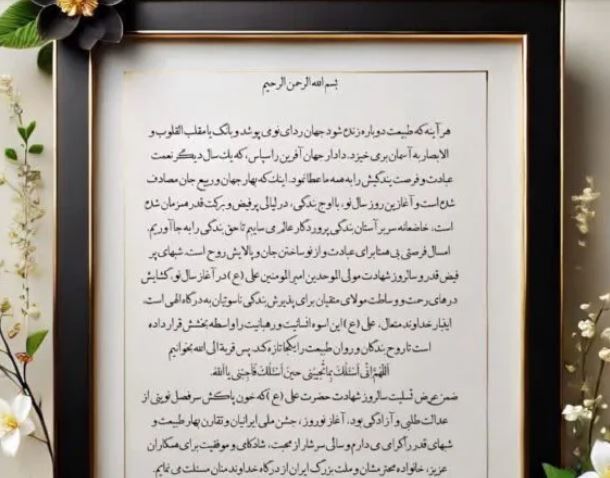 بسم الله الرحمن الرحیم
هر آینه که طبیعت دوباره زنده شود جهان ردای نو می پوشد و بانگ یا مقلب القلوب و
الابصار به آسمان برمی خیزد. دادار جهان آفرین را سپاس، که یک سال دیگر نعمت
عبادت و فرصت بندگیش را به همه ما عطا نمود. اینک که بهار جهان و ربیع جان مصادف
شده است و آغازین روز سال نو، با اوج بندگی، در لیالی پر فیض و برکت قدر همزمان شده
است، خاضعانه سر بر آستان بندگی پروردگار عالم می ساییم تا حق بندگی را به جا آوریم.
امسال فرصتی بی همتا برای عبادت و از نو ساختن جان و پالایش روح است. شبهای پر
فیض قدر و سالروز شهادت مولی الموحدین امیرالمومنین علی (ع) در آغاز سال نو، گشایش
درهای رحمت و وساطت مولای متقیان برای پذیرش بندگی ناسوتیان به درگاه الهی است.
اینبار خداوند متعال، علی (ع) این اسوه انسانیت و رهبانیت را واسطه بخشش قرار داده
است تا روح بندگان و روان طبیعت را یکجا تازه کند. پس قربة الی الله بخوانیم
اللهم إنی أسئلک بما تجیبنی حین أسئلک فأجبنی یا الله.
ضمن عرض تسلیت سالروز شهادت حضرت علی (ع) که خون پاکش سرفصل نوینی از
عدالت طلبی و آزادگی بود، آغاز نوروز، جشن ملی ایرانیان و تقارن بهار طبیعت و
شبهای قدر را گرامی می دارم و سالی سرشار از محبت، شادکامی و موفقیت برای همکاران
عزیز، خانواده محترمشان و ملت بزرگ ایران از درگاه خداوند منان مسئلت می نمایم.